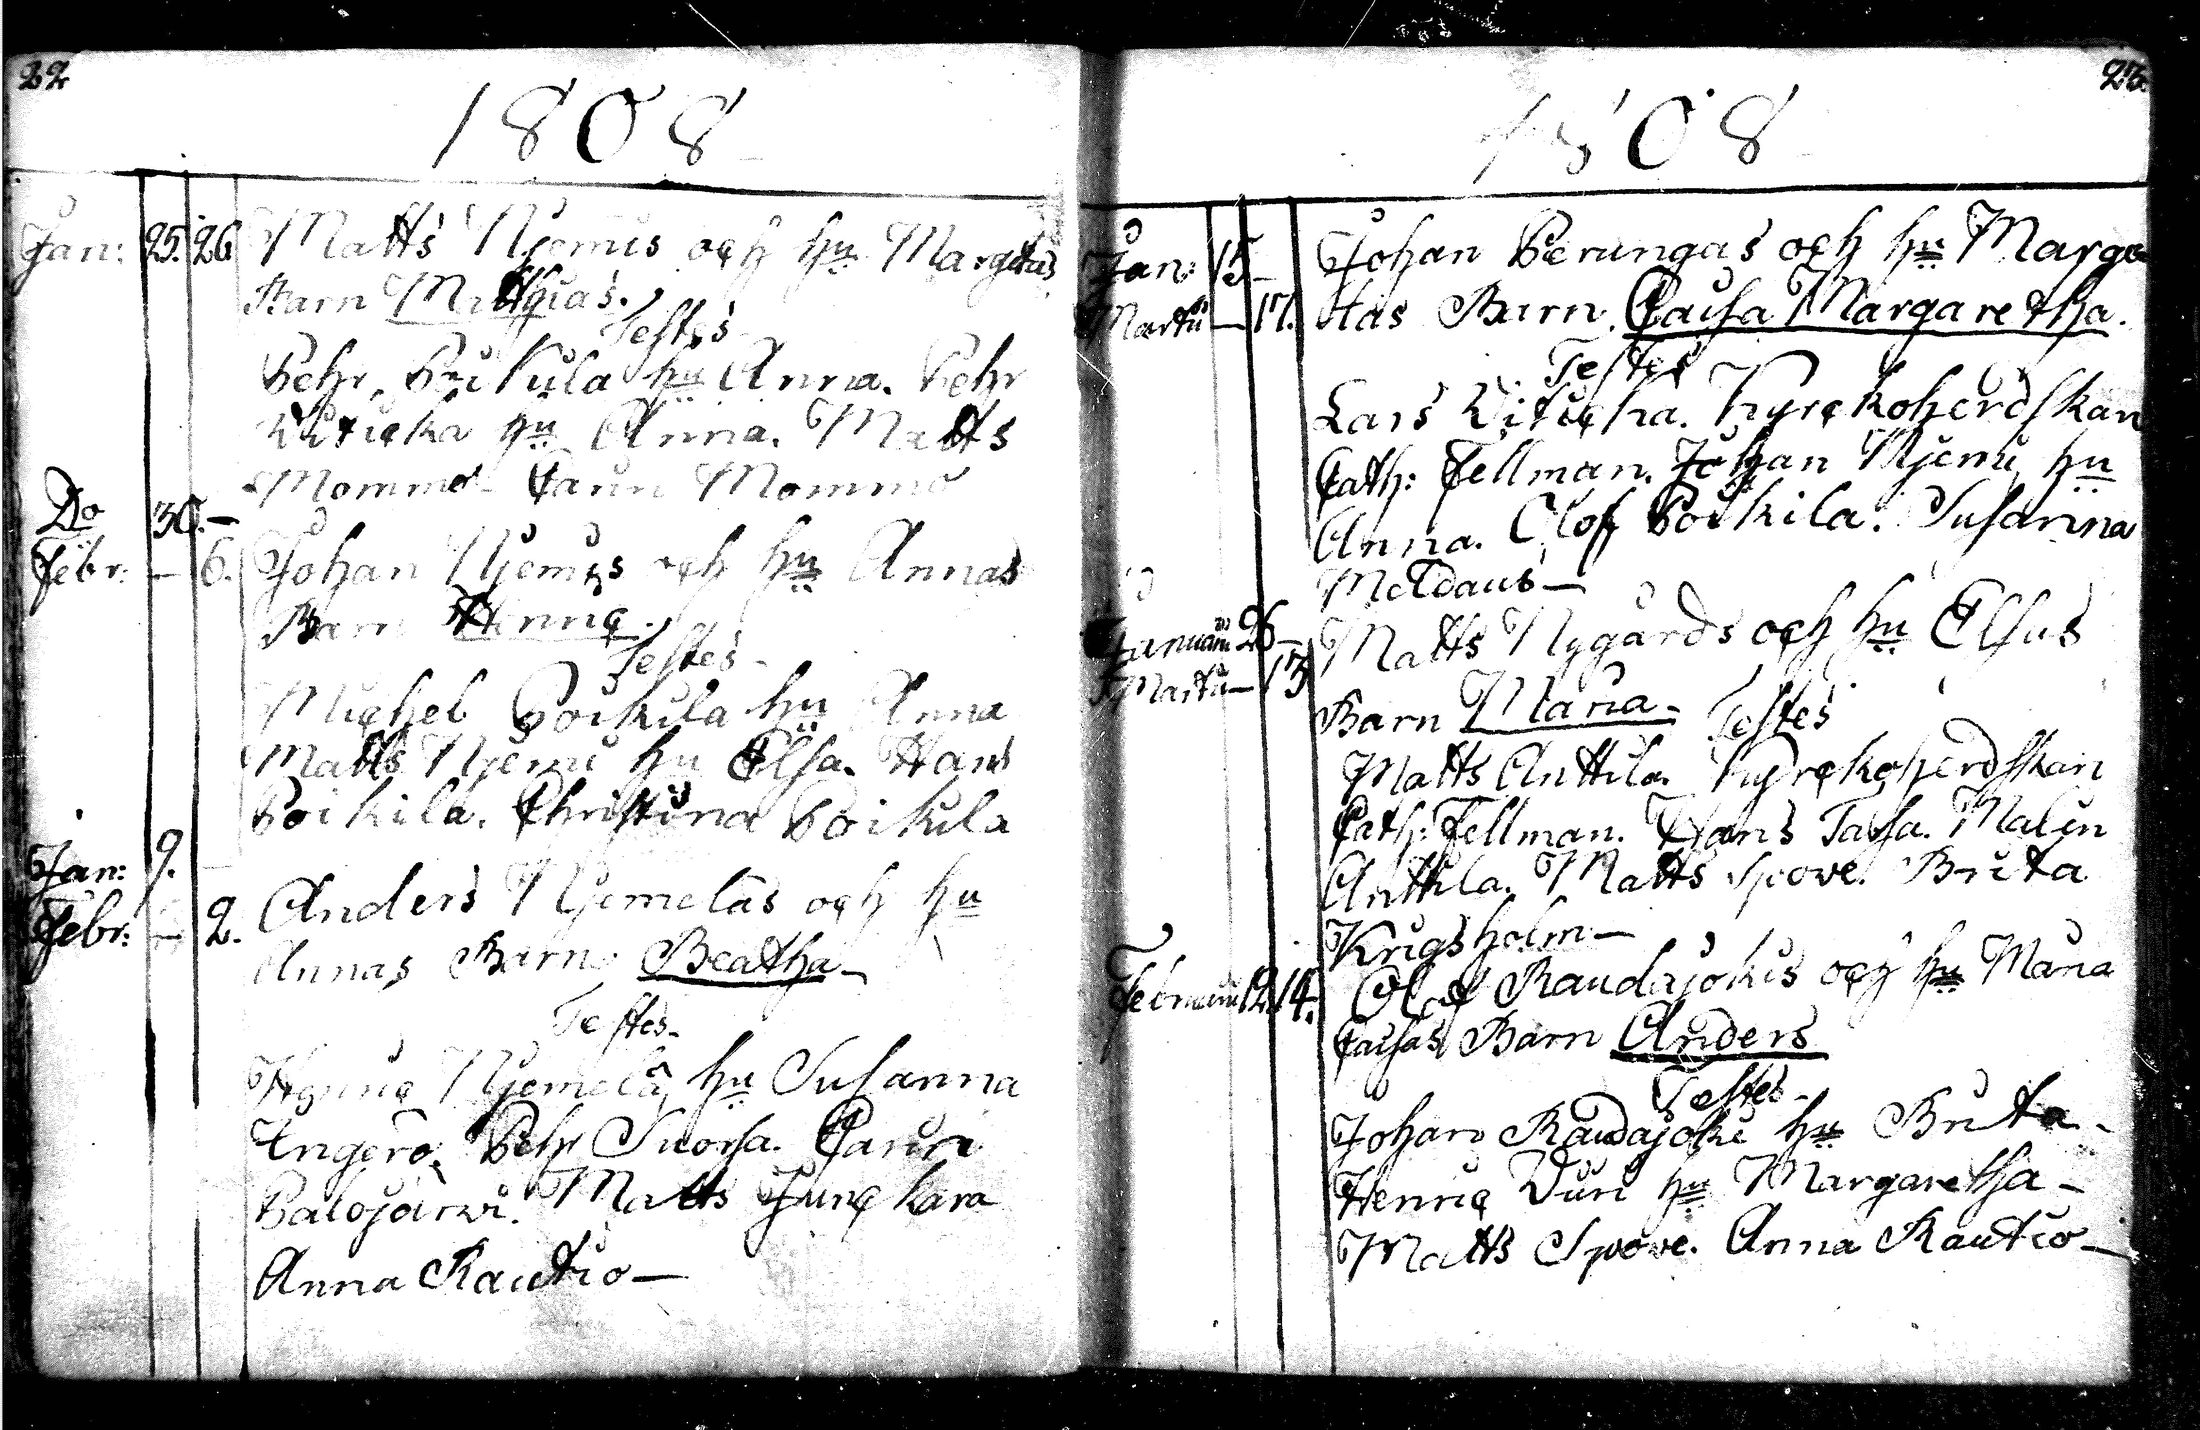 22
1808
Jan: 25. 26 Matts Njemis och hu Margetas
Barn Mathias.
Testes
Pehr Poikula hu Anna. Pehr
Witicka hu Anna. Matts
Mommo Carin Mommo
Do 30. –
Febr: – 6. Johan Njemis och hu Annas
Barn Henric.
Testes
Michel Poikila hu Anna
Matts Njemi hu Elsa. Hans
Poikila. Christina Poikila
Jan: 9. –
Febr: – 2. Anders Njemeläs och hu
Annas Barn Beatha
Testes
Henric Njemelä hu Susanna
Ingerö. Pehr Suorsa. Carin
Palojärwi. Matts Junckara
Anna Rautio
23.
1808
Jan: 15 – Johan Perungas och hu Marga
Martii – 17. ttas Barn Caisa Margaretha.
Testes
Lars Witicka. Kyrckoherdskan
Cath: Fellman. Johan Njemi hu
Anna. Olof Poikila. Susanna
Moldaus
Januarii 26 – Matts Nygårds och hu Elsas
Martii – 13 Barn Maria
Testes
Matts Anttila. Kyrckoherdskan
Cath: Fellman. Hans Taisa. Malin
Anttila. Matts Spove. Brita
Krigsholm
Februarii 12. 14. Olof Raudajokis och hu Maria
Caisas Barn Anders
Testes
Johan Raudajoki hu Brita
Henric Vuri hu Margaretha
Matts Spove. Anna Rautio